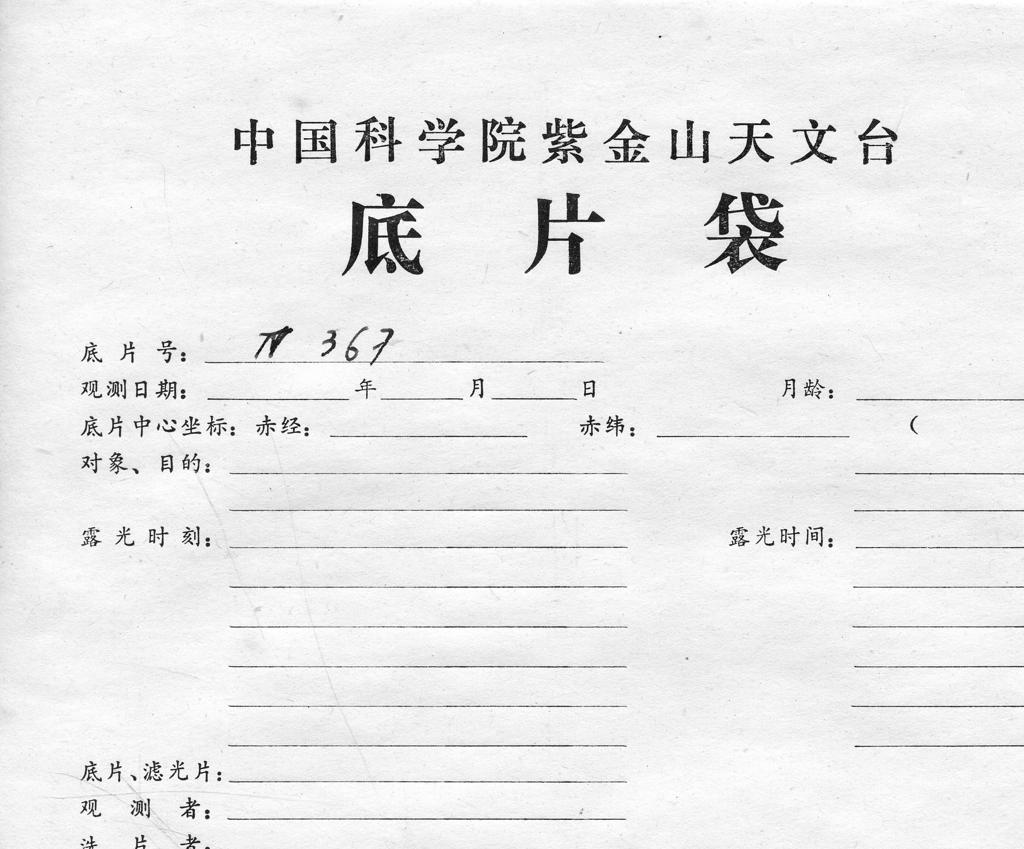 中国科学院紫金山天文台
底片袋
底片号: 367
观测日期: 年 月 日 月龄:
底片中心坐标: 赤经: 赤纬: (
对象、目的:
露光时刻: 露光时间:
底片、滤光片:
观测者:
洗片者: